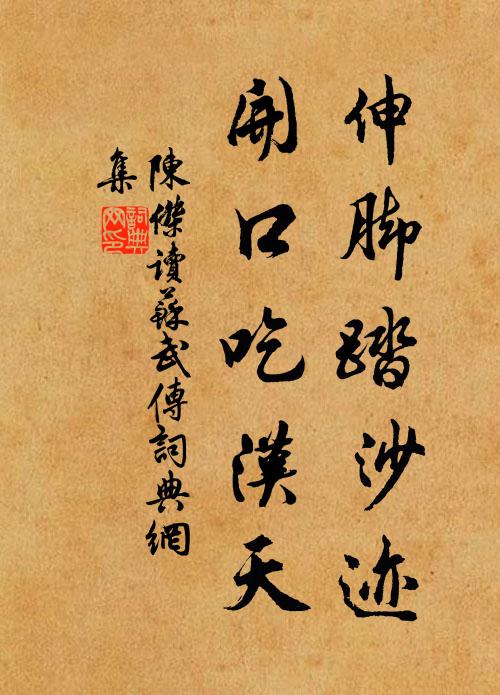 伸脚踏沙迹
開口吃漢天
陳傑讀蘇武傳詞典網
集
詞典
网印